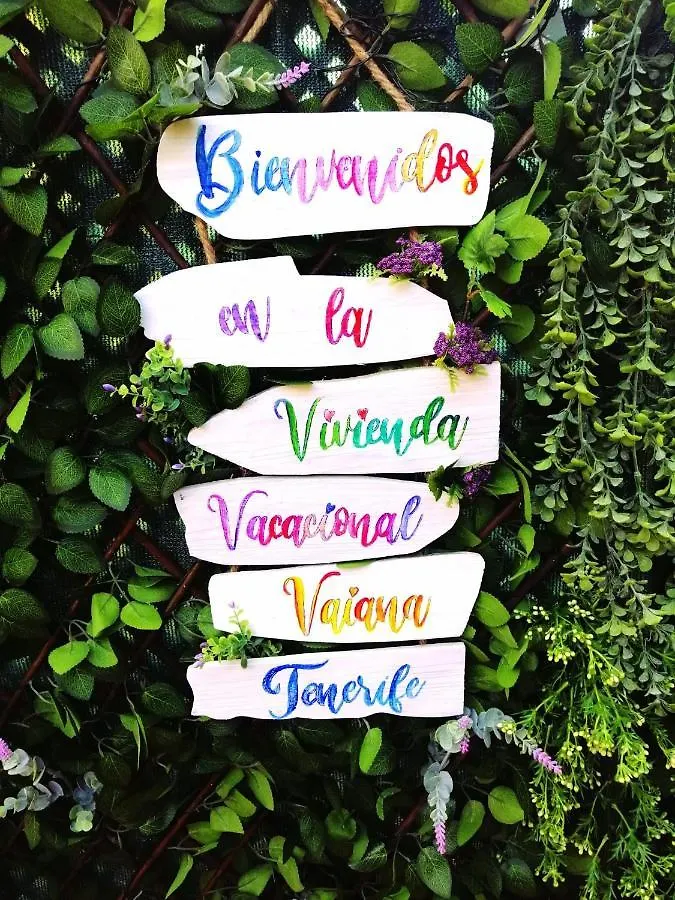 Bienvenidos
en la
Vivienda
Vacacional
Vaiana
Tenerife